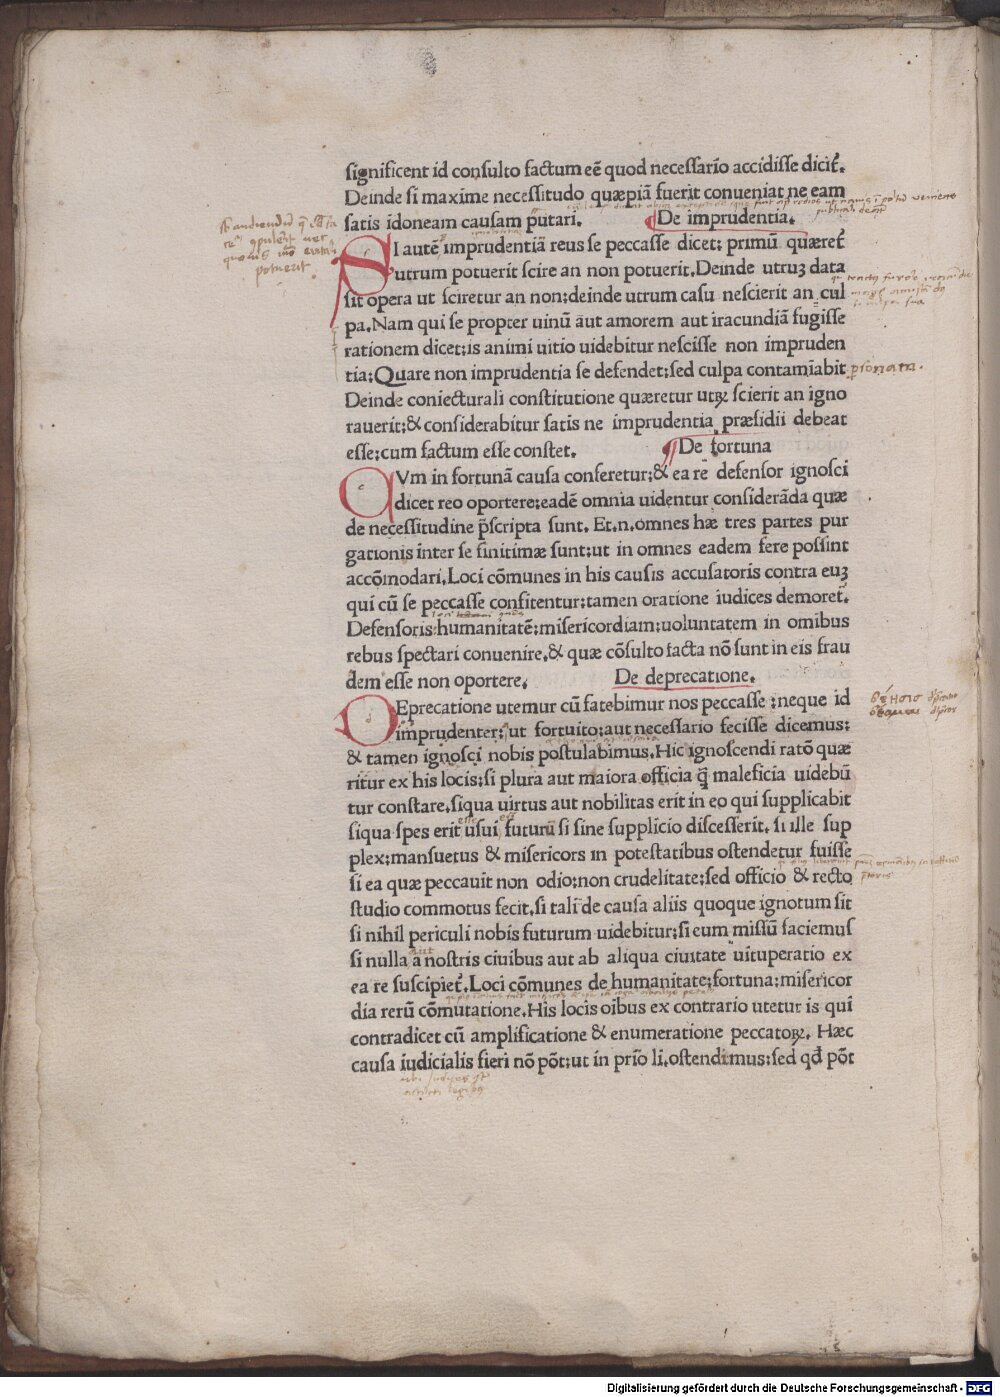 significent id consulto factum eē quod necessario accidisse diciť.
Deinde si maxime necessitudo quæpiā fuerit conueniat ne eam
satis idoneam causam putari. De imprudentia.
SI autē imprudentiā reus se peccasse dicet: primū quæreť
utrum potuerit scire an non potuerit. Deinde utruꝫ data
sit opera ut sciretur an non: deinde utrum casu nescierit an cul
pa. Nam qui se propter uinū aut amorem aut iracundiā fugisse
rationem dicet: is animi uitio uidebitur nescisse non impruden
tia: Quare non imprudentia se defendet: sed culpa contamīabit
Deinde coniecturali constitutione quæretur utꝝ scierit an igno
rauerit: & considerabitur satis ne imprudentia præsidii debeat
esse: cum factum esse constet. De fortuna
CVm in fortunā causa conferetur: & ea rē defensor ignosci
dicet reo oportere: eadē omnia uidentur considerāda quæ
de necessitudine p̄scripta sunt. Et .n. omnes hæ tres partes pur
gationis inter se finitimæ sunt: ut in omnes eadem fere possint
accōmodari. Loci cōmunes in his causis accusatoris contra euꝫ
qui cū se peccasse confitentur: tamen oratione iudices demoreť.
Defensoris: humanitatē: misericordiam: uoluntatem in omibus
rebus spectari conuenire. & quæ cōsulto facta nō sunt in eis frau
dem esse non oportere. De deprecatione.
DEprecatione utemur cū fatebimur nos peccasse: neque id
imprudenter: ut fortuito: aut necessario fecisse dicemus:
& tamen ignosci nobis postulabimus. Hic ignoscendi ratō quæ
ritur ex his locis: si plura aut maiora officia q̄ maleficia uidebū
tur constare. siqua uirtus aut nobilitas erit in eo qui supplicabit
siqua spes erit usui futurū si sine supplicio discesserit. si ille sup
plex: mansuetus & misericors in potestatibus ostendetur fuisse
si ea quæ peccauit non odio: non crudelitate: sed officio & recto
studio commotus fecit. si tali de causa aliis quoque ignotum sit
si nihil periculi nobis futurum uidebitur: si eum missū faciemus
si nulla a nostris ciuibus aut ab aliqua ciuitate uituperatio ex
ea re suscipieť. Loci cōmunes de humanitate: fortuna: misericor
dia rerū cōmutatione. His locis oibus ex contrario utetur is qui
contradicet cū amplificatione & enumeratione peccatoꝝ. Hæc
causa iudicialis fieri nō pōt: ut in prīo li. ostendimus: sed qđ pōt
Digitalisierung gefördert durch die Deutsche Forschungsgemeinschaft - DFG